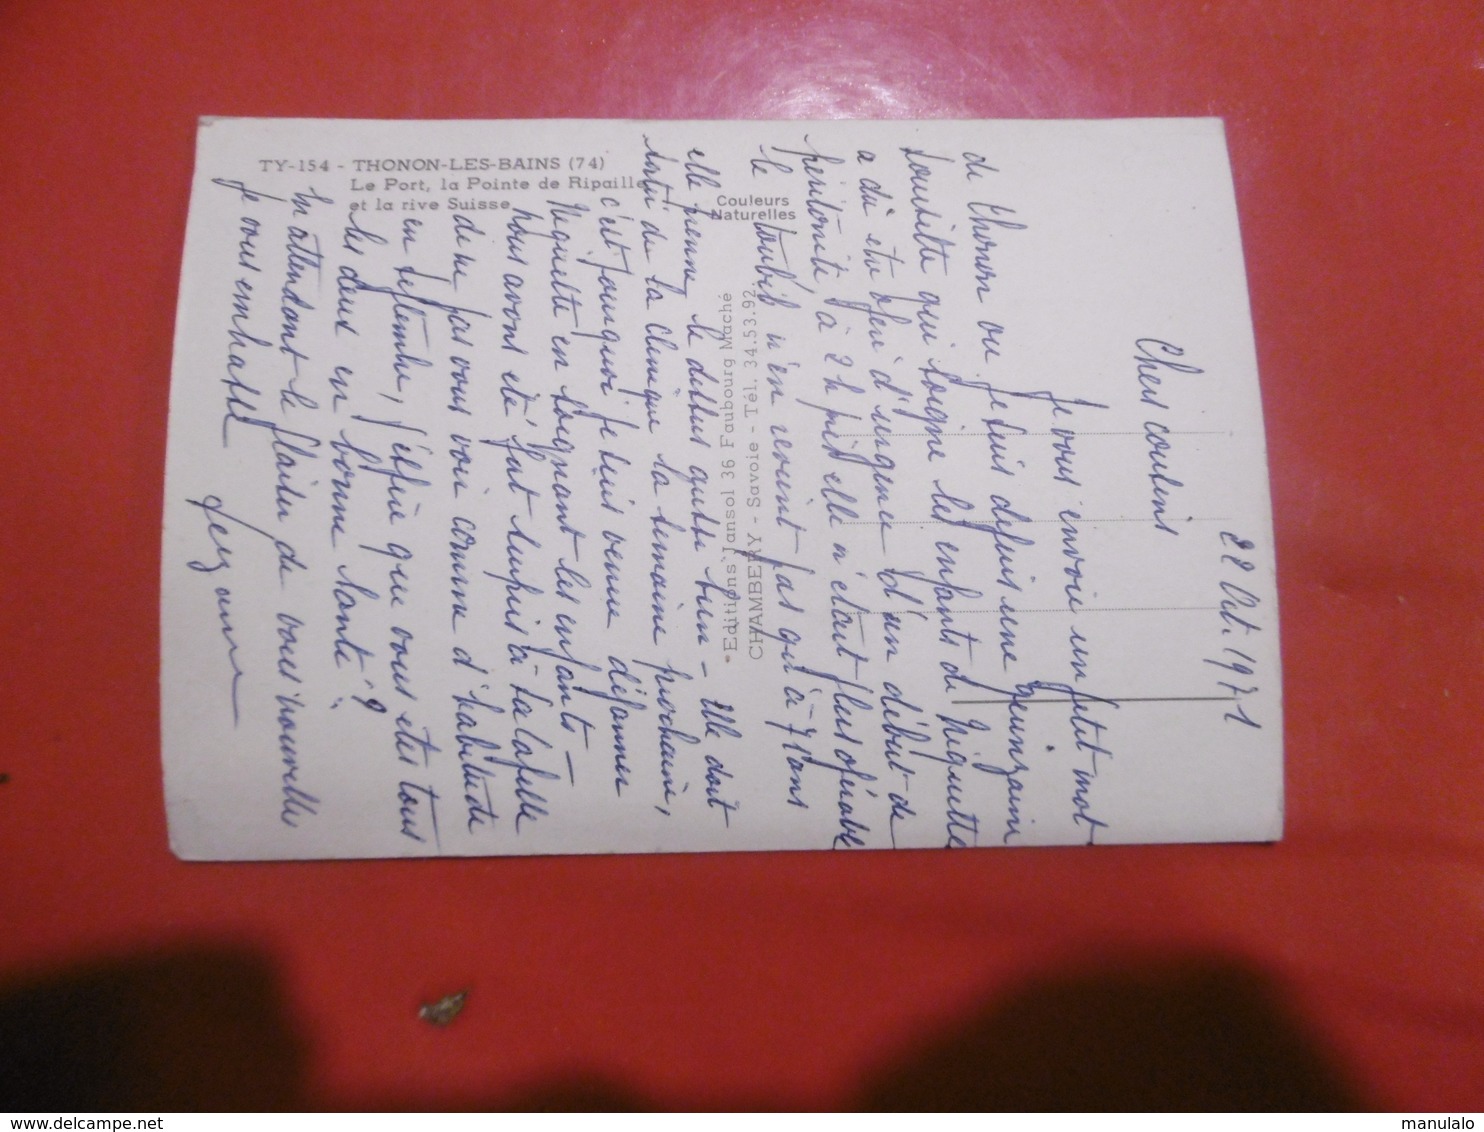 TY-154 - THONON-LES-BAINS (74)
Le Port, la Pointe de Ripaille
et la rive Suisse
Couleurs
Naturelles
Editions Jansol 36 Faubourg Maché
CHAMBERY - Savoie - Tél. 34.53.92.
22 Oct. 1971
Chers cousins
Je vous envoie un petit mot
de Thonon ou je suis depuis une quinzaine
Lousitte qui soigne les enfants de Huguette
a dû etre opéré d'urgence d'un début de
péritonite à 2 h près elle n'était plus opérable
le toubib n'en revient pas qu'à 71 ans
elle prenne le dessus aussi bien - Elle doit
sortir de la clinique la semaine prochaine,
c'est pourquoi je suis venue dépanner
Huguette en soignant les enfants -
Nous avons été pas surpris à la Capelle
de ne pas vous voir comme d'habitude
en septembre, j'espère que vous êtes tous
les deux en bonne santé ?
En attendant le plaisir de vous nouvelles
je vous embrasse
manulalo